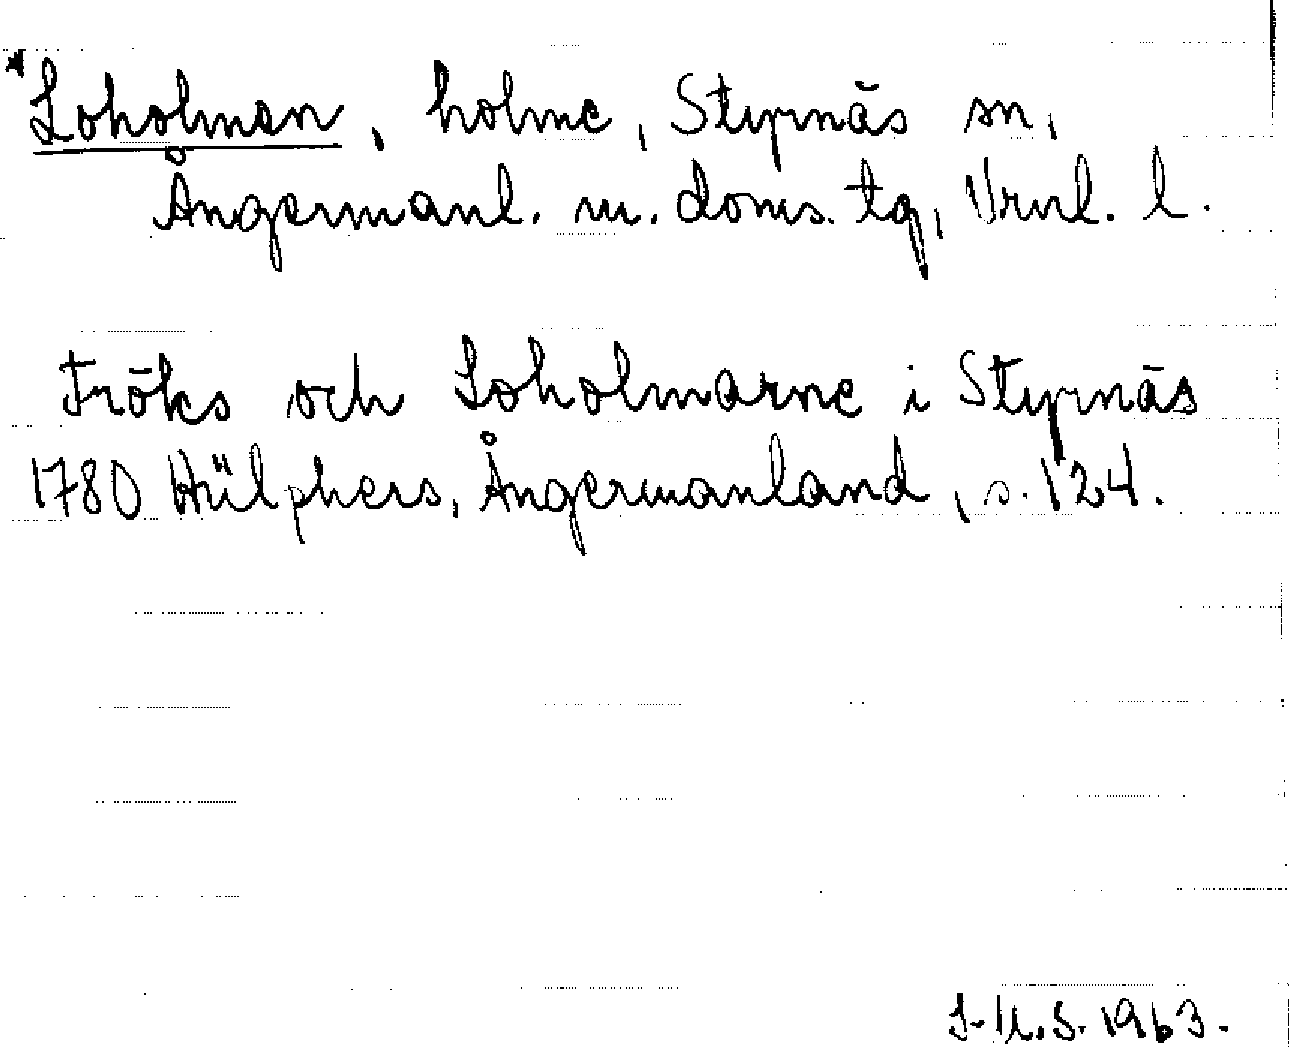 *Loholmen, holme, Styrnäs sn,
Ångermanl. m. doms. tg, Vrnl. l.
Fröks och Loholmarne i Styrnäs
1780 Hülphers, Ångermanland, s. 124.
1963.